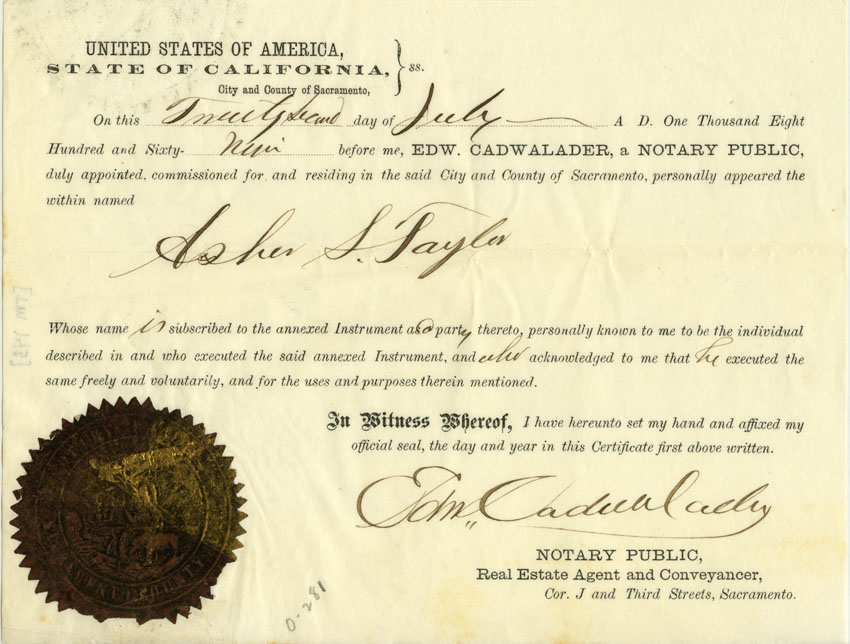 UNITED STATES OF AMERICA,
STATE OF CALIFORNIA,
ss.
City and County of Sacramento,
On this Twenty second day of July A D. One Thousand Eight
Hundred and Sixty- Nine before me, EDW. CADWALADER, a NOTARY PUBLIC,
duly appointed, commissioned for and residing in the said City and County of Sacramento, personally appeared the
within named
Asher S. Taylor
Whose name is subscribed to the annexed Instrument as a party thereto, personally known to me to be the individual
described in and who executed the said annexed Instrument, and who acknowledged to me that he executed the
same freely and voluntarily, and for the uses and purposes therein mentioned.
In Witness Whereof, I have hereunto set my hand and affixed my
official seal, the day and year in this Certificate first above written.
Edw. Cadwalader
NOTARY PUBLIC,
Real Estate Agent and Conveyancer,
Cor. J and Third Streets, Sacramento.
0-281